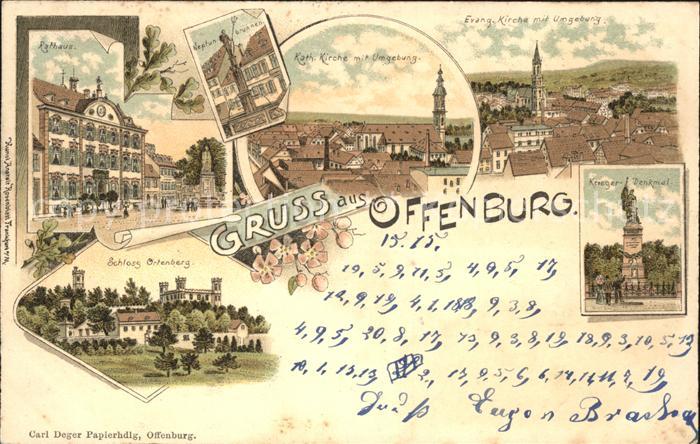 Rathaus.
Neptun brunnen.
Kath. Kirche mit Umgebung.
Evang. Kirche mit Umgebung.
Krieger-Denkmal.
GRUSS aus OFFENBURG.
Schloss Ortenberg.
15. 15.
19, 5, 9, 11, 5 4, 9, 5, 17
12, 9, 19, 4, 1, 9, 3, 8,
4, 9, 5, 20, 8, 17, 13, 9, 3, 8, 19 18, 9, 3, 10, 5, 19
10, 1, 13, 13 2, 17, 9, 5, 6, 6, 14, 11, 11, 7, 19,
Gruß Eugen
Carl Deger Papierhdlg, Offenburg.